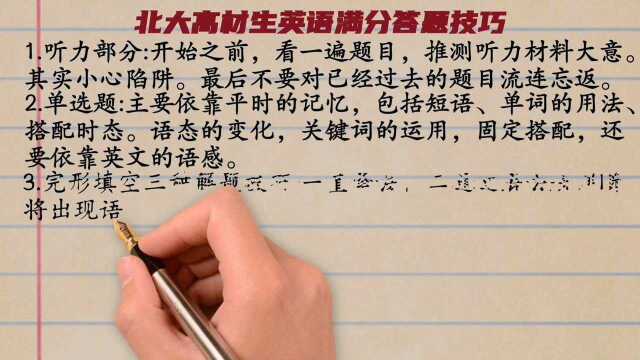 北大高材生英语满分答题技巧
1.听力部分:开始之前，看一遍题目，推测听力材料大意。
其实小心陷阱。最后不要对已经过去的题目流连忘返。
2.单选题:主要依靠平时的记忆，包括短语、单词的用法、
搭配时态。语态的变化，关键词的运用，固定搭配，还
要依靠英文的语感。
3.完形填空三种解题技巧一直
将出现语